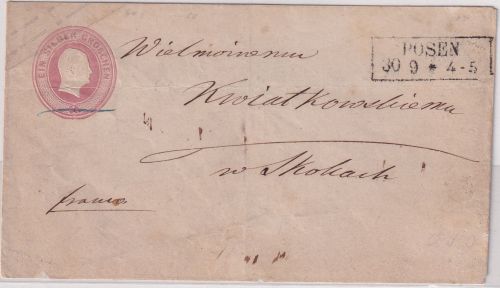 EIN SILBER GROSCHEN
POSEN
30 9 * 4-5
Wielmożnemu
Kwiatkowskiemu
w Skokach
franco